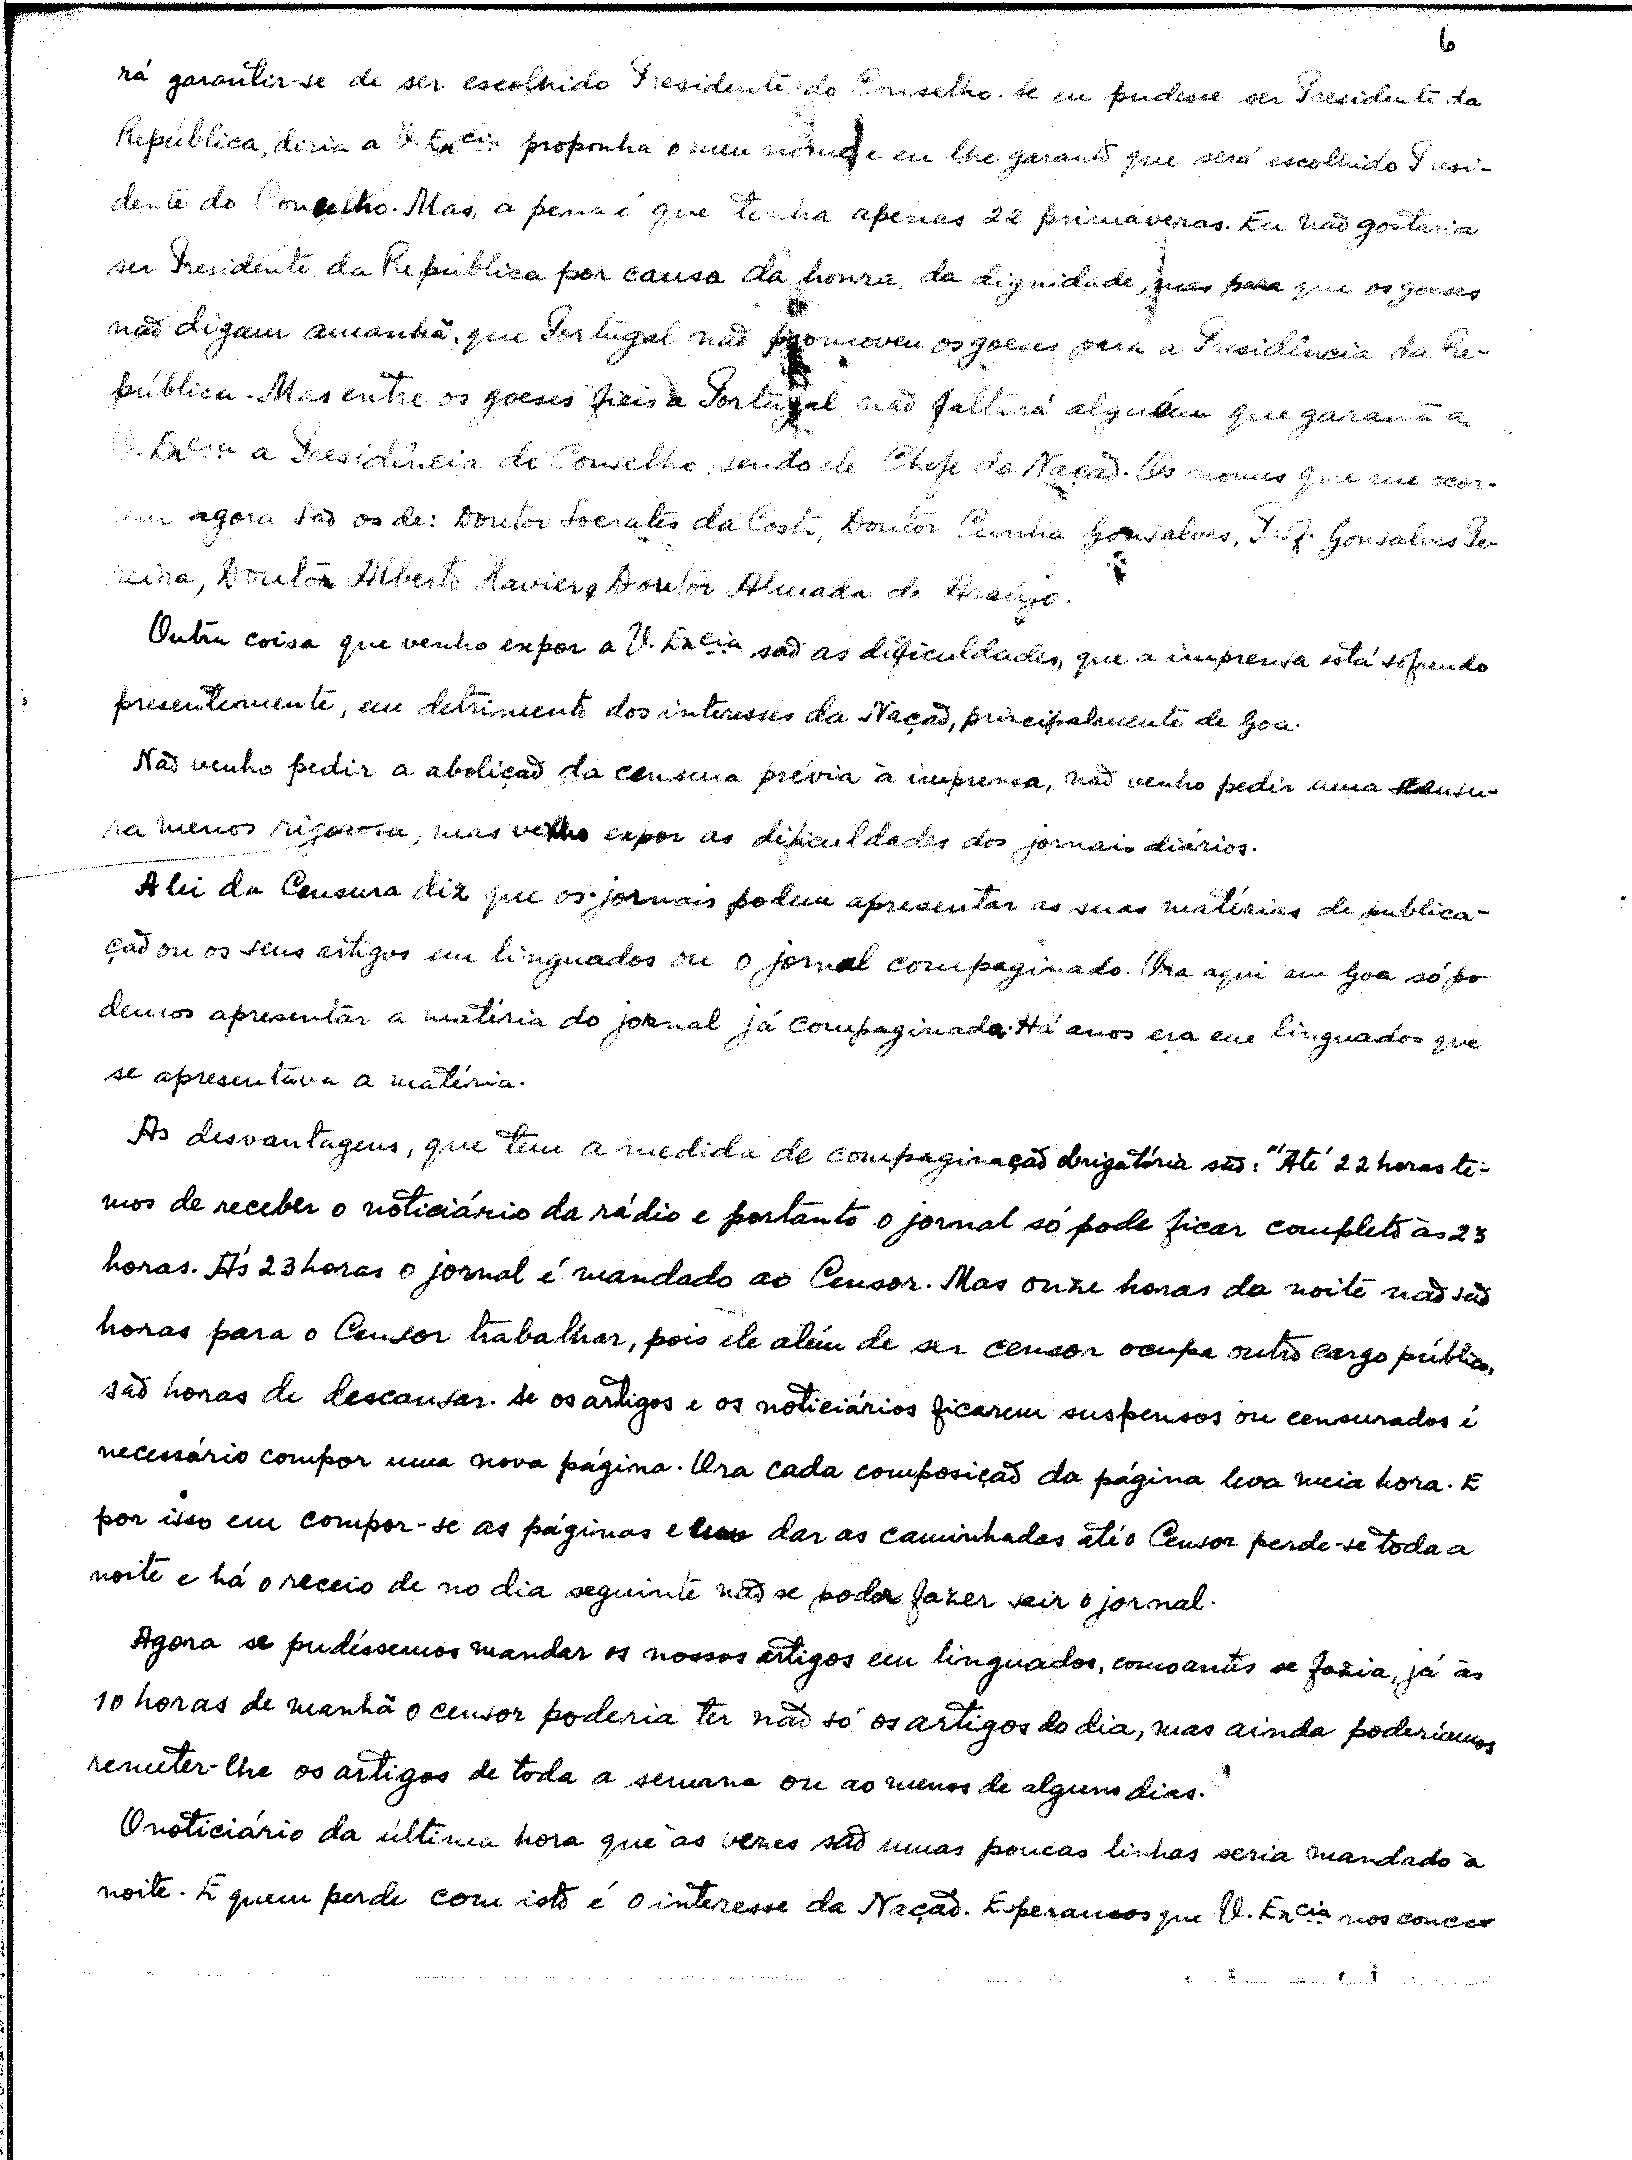 6
rá garantir-se de ser escolhido Presidente do Conselho. Se eu pudesse ser Presidente da
República, diria a V. Excia proponha o meu nome e eu lhe garanto que será escolhido Presi-
dente do Conselho. Mas, a pena é que tenha apenas 22 primaveras. Eu não gostaria
ser Presidente da República por causa da honra, da dignidade, mas para que os goeses
não digam amanhã, que Portugal não promoveu os goeses para a Presidência da Re-
pública. Mas entre os goeses fieis a Portugal não faltará alguém que garanta a
V. Excia a Presidência do Conselho, sendo ele Chefe da Nação. Os nomes que me ocor-
rem agora são os de: Doutor Socrates da Costa, Doutor Cunha Gonsalves, Prof. Gonsalves Pe-
reira, Doutor Alberto Xavier, Doutor Almada de Araújo.
Outra coisa que venho expor a V. Excia são as dificuldades, que a imprensa está sofrendo
presentemente, em detrimento dos interesses da Nação, principalmente de Goa.
Não venho pedir a abolição da censura prévia à imprensa, não venho pedir uma censu-
ra menos rigorosa, mas venho expor as dificuldades dos jornais diários.
A lei da Censura diz que os jornais podem apresentar as suas matérias de publica-
ção ou os seus artigos em linguados ou o jornal compaginado. Ora aqui em Goa só po
demos apresentar a matéria do jornal já compaginada. Há anos era em linguados que
se apresentava a matéria.
As desvantagens, que tem a medida de compaginação obrigatória são: "Até 22 horas te-
mos de receber o noticiário da rádio e portanto o jornal só pode ficar completo às 23
horas. Às 23 horas o jornal é mandado ao Censor. Mas onze horas da noite não são
horas para o Censor trabalhar, pois ele além de ser censor ocupa outro cargo público,
são horas de descansar. Se os artigos e os noticiários ficarem suspensos ou censurados é
necessário compor uma nova página. Ora cada composição da página leva meia hora. E
por isso em compor-se as páginas e dar as caminhadas até o Censor perde-se toda a
noite e há o receio de no dia seguinte não se poder fazer sair o jornal.
Agora se pudéssemos mandar os nossos artigos em linguados, como antes se fazia, já às
10 horas de manhã o censor poderia ter não só os artigos do dia, mas ainda poderíamos
remeter-lhe os artigos de toda a semana ou ao menos de alguns dias."
O noticiário da última hora que às vezes são umas poucas linhas seria mandado à
noite. E quem perde com isto é o interesse da Nação. Esperamos que V. Excia nos conce